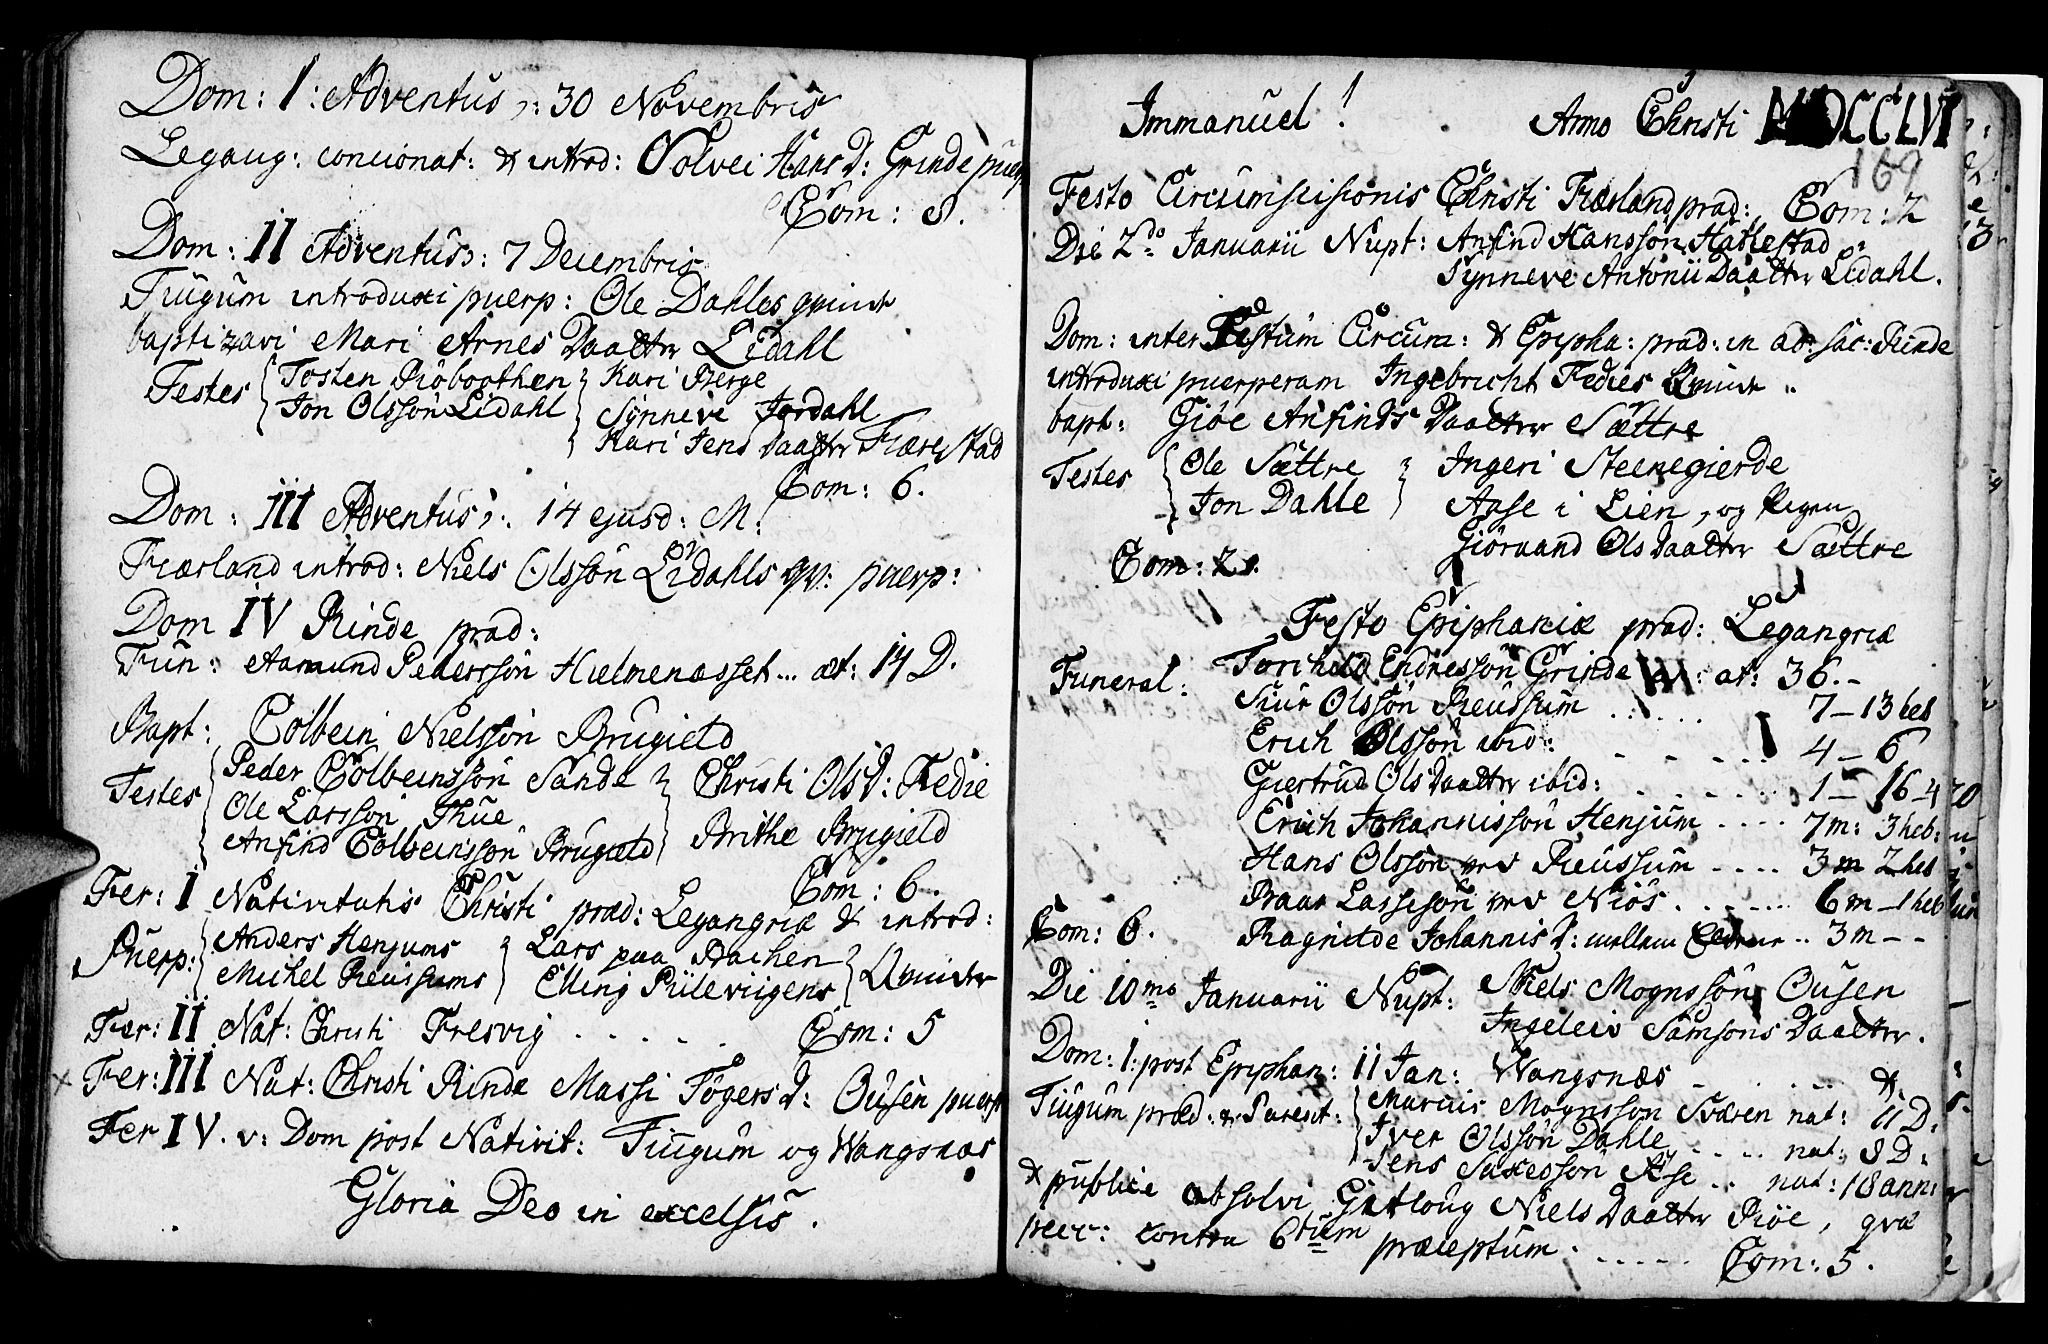 Dom: I: Adventus, : 30 Novembris
Legang: concionat: & introd: Solvei Hans D: Grinde puerp
Com: 8.
Dom: II Adventus,: 7 Decembris
Tiugum introduxi puerp: Ole Dahles qvinde
baptizavi Mari Arnes Daatter Lidahl
Testes { Tosten Riöbogthen } Kari Berge
Jon Olssön Lidahl } Synneve Jordahl
Kari Jens Daatter Fiærestad
Com: 6.
Dom: III Adventus,: 14 ejusd: M:
Fiærland introd: Niels Olssön Lidahls qv: puerp:
Dom IV Rinde præd:
Fun: Aamund Pederssön Hielmenæsset... æt: 14 D.
Bapt: Colbein Nielssön Brugield
Testes { Peder Colbeinssön Sande } Christi Ols D: Fedie
Ole Larssön Thue
Anfind Colbeinssön Brugield } Brithe Brugield
Com: 6.
Fer: I Nativitatis Christi præd: Legangriæ & introd:
Puerp: { Anders Henjums } Lars paa Bachen } Qvinder
Michel Reussums } Elling Piileviigens
Fer: II Nat: Christi Fresvig . . . . . . Com: 5
x Fer: III Nat: Christi Rinde Massi Fögers D: Ousen puerp
Fer IV. v: Dom post Nativit: Tiugum og Wangsnæs
Gloria Deo in excelsis.
Immanuel! Anno Christi MDCCLVI
169
Festo Circumscisionis Christi Fiærland præd: Com: 2
Die 2do Januarii Nupt: Anfind Hansson Hatlestad
Synneve Antonii Daatter Lidahl.
Dom: inter Festum Circum: & Epipha: præd: in æd: sac: Rinde
introduxi puerperam Ingebricht Fedies Qvinde
bapt: Giöe Anfinds Daatter Sættre
Testes { Ole Sættre } Ingeri Steenegierde
Jon Dahle } Aase i Lien, og Pigen
Giöruand Ols Daatter Sættre
Com: 21.
Festo Epiphaniæ præd: Legangriæ
Funeral: Torchild Endressön Grinde æt: 36.-
Siur Olssön Reussum ...... 7 - 13 heb
Erich Olssön ibid: - - - - - 4 - 6
Giertrud Ols Daatter ibid: . . . . . . 1 - 16 - 4
Erich Johannissön Henjum .... 7m: 3 heb:
Hans Olssön Reussum .... 3 m 2 heb
Baar Lassesön Niös. ..... 6 m - 1 heb
Com: 6. Ragnilde Johannis D: mellem .. 3 m - -
Die 10mo Januarii Nupt: Niels Mognssön Ousen
Ingeleiv Samsons Daatter.
Dom: 1: post Epiphan: 11 Jan: Wangsnæs - . . . . . &
Tiugum præd: & Parent: { Marcus Mognsson Sværen nat: 11 D:
Iver Olssön Dahle .... nat: 8 D:
Jens Saxessön Aase .. nat: 18 ann:
& publice absolvi Gotloug Niels Daatter Riöe, qvæ
pecc: contra 6tum præceptum. - - - - - Com: 5.